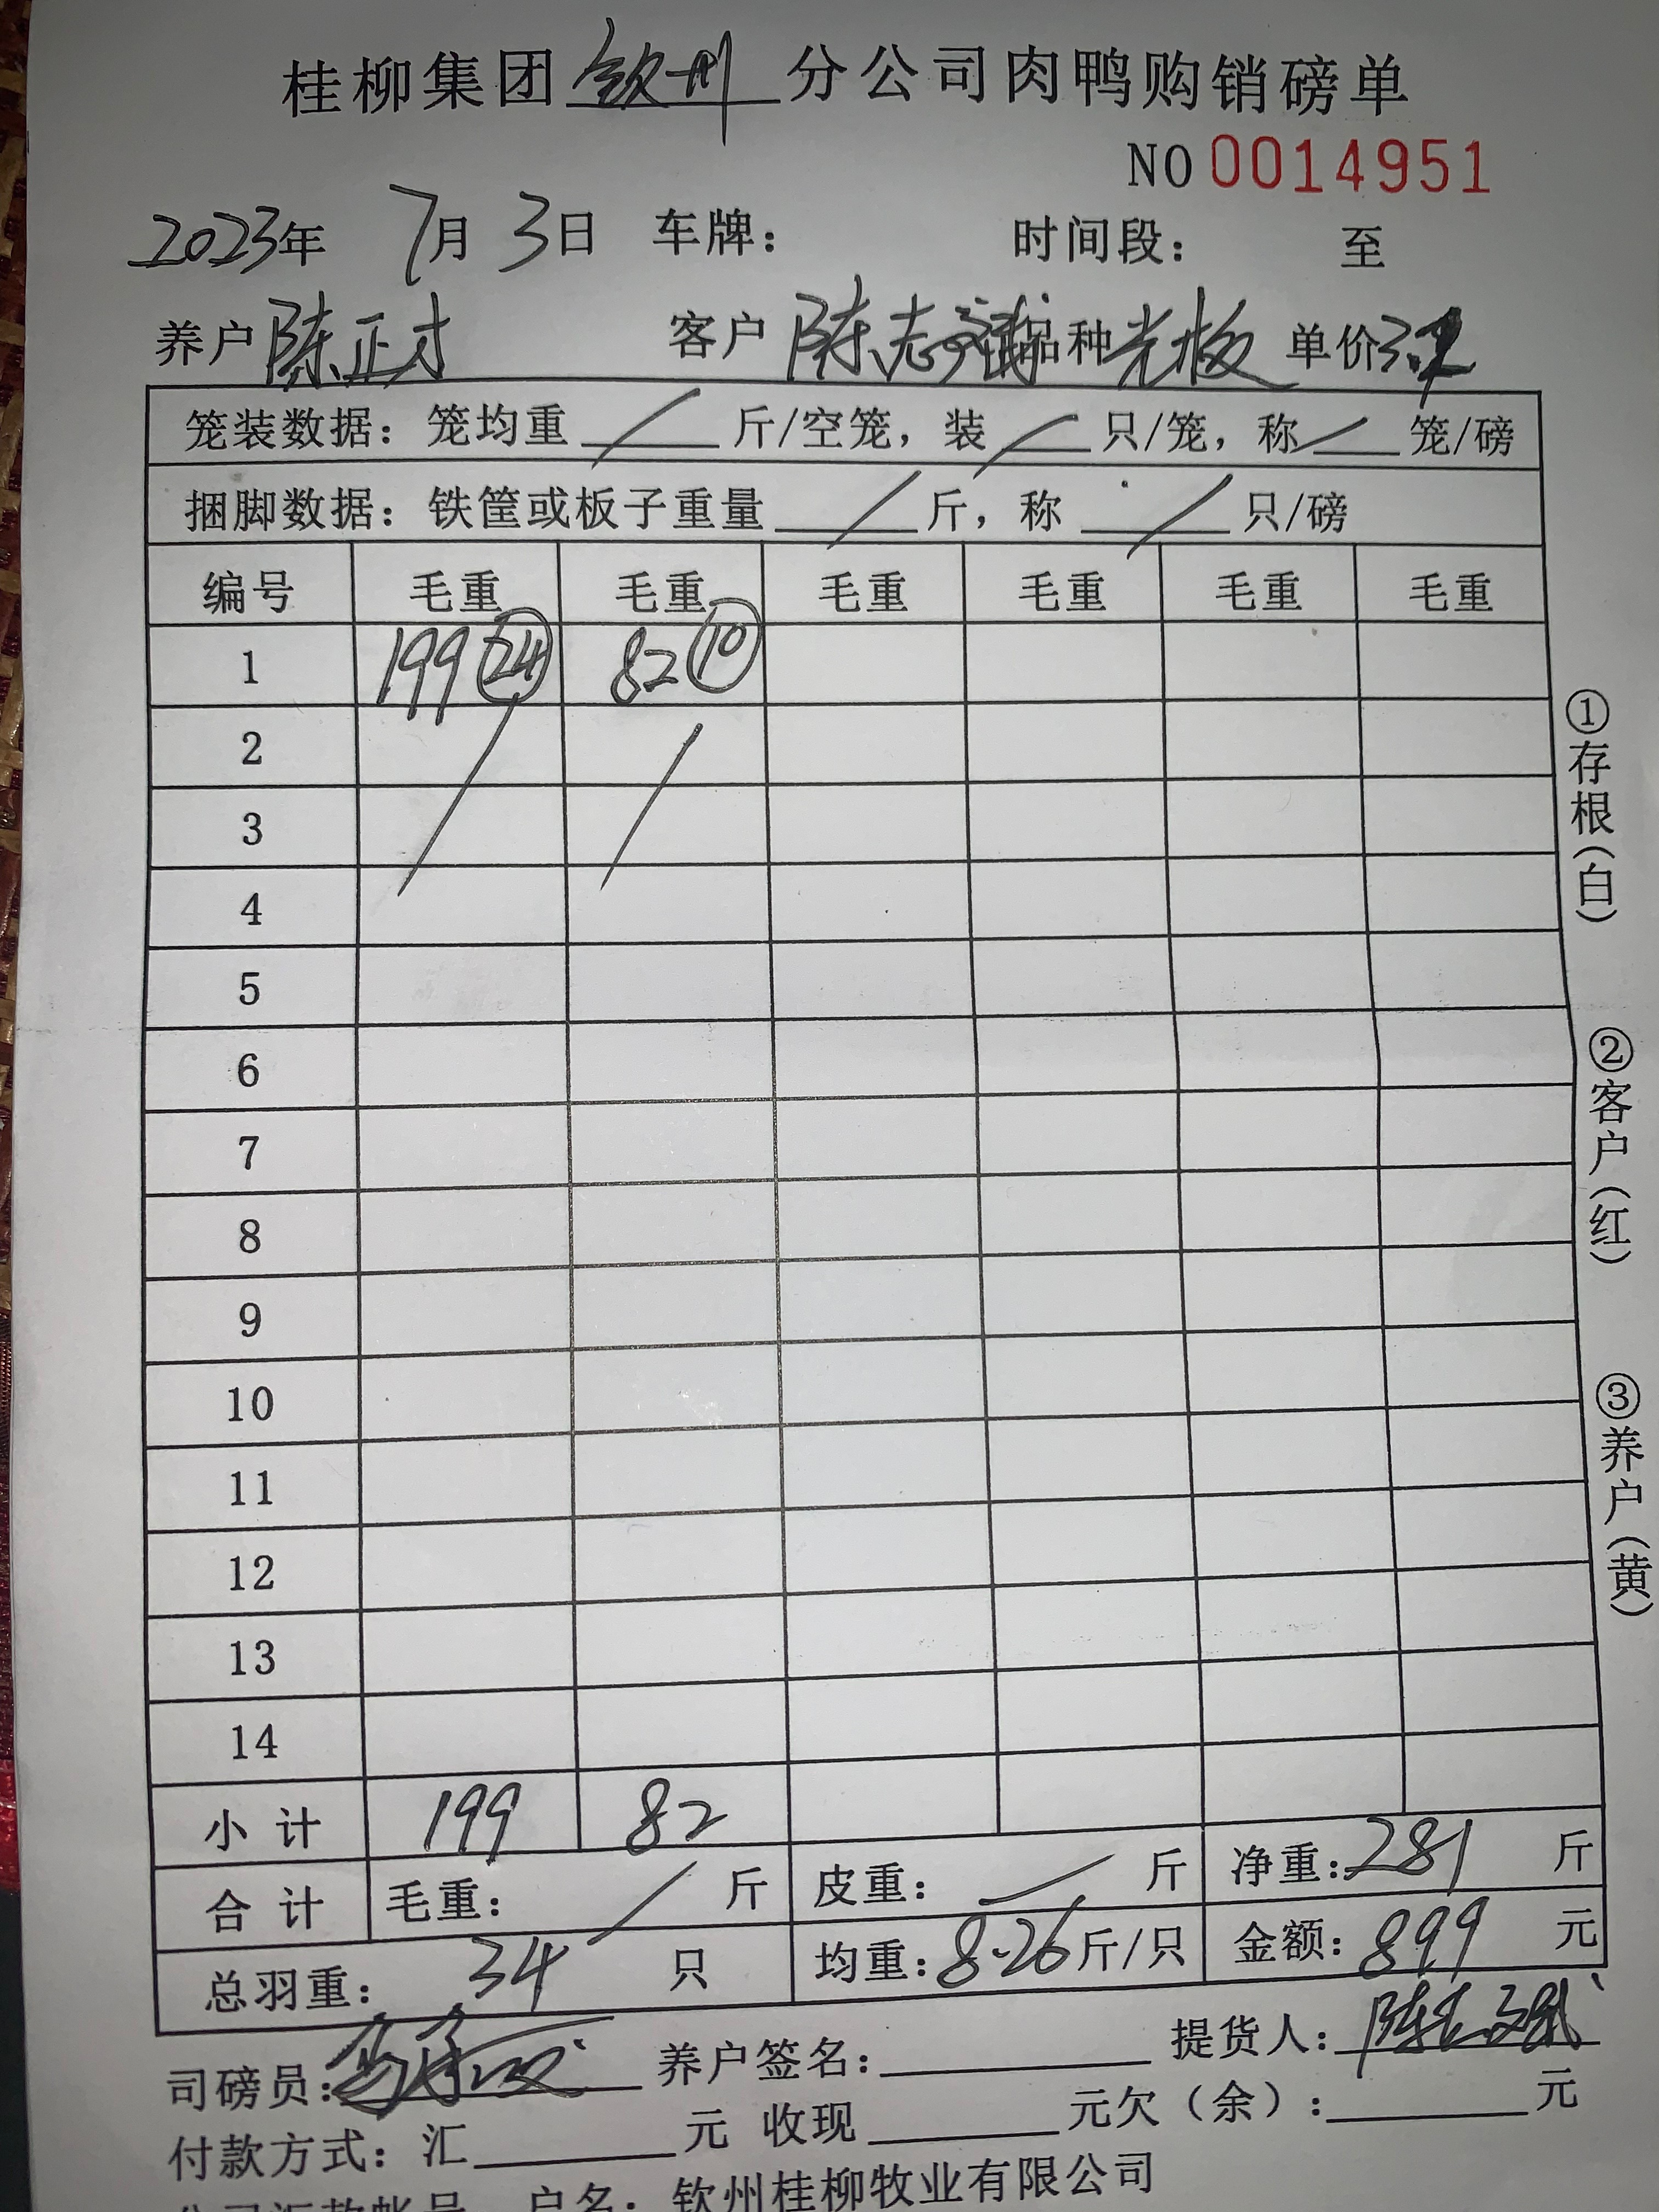 桂柳集团钦州分公司肉鸭购销磅单
NO 0014951
2023年 7月 3日 车牌： 时间段： 至
养户 陈正才 客户 陈志 品种 光板 单价 3.2
笼装数据：笼均重 / 斤/空笼，装 / 只/笼，称 / 笼/磅
捆脚数据：铁筐或板子重量 / 斤，称 / 只/磅
编号 毛重 毛重 毛重 毛重 毛重 毛重
1 199 24 82 10
2
3
4
5
6
7
8
9
10
11
12
13
14
小计 199 82
合计 毛重： / 斤 皮重： / 斤 净重：281 斤
总羽重： 34 只 均重：8.26斤/只 金额：899 元
司磅员： 养户签名： 提货人：陈志
付款方式：汇 元 收现 元欠（余）： 元
户名：钦州桂柳牧业有限公司
①存根（白）
②客户（红）
③养户（黄）